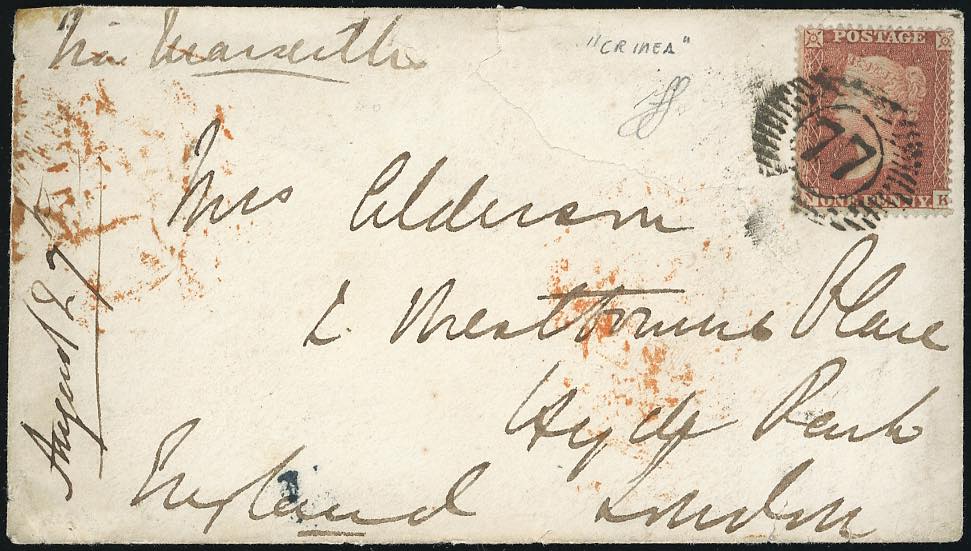 Via Marseille
"CRIMEA"
POSTAGE
77
ONE PENNY K
Mrs Alderson
2 Westbourne Place
Hyde Park
London
England
August 27th